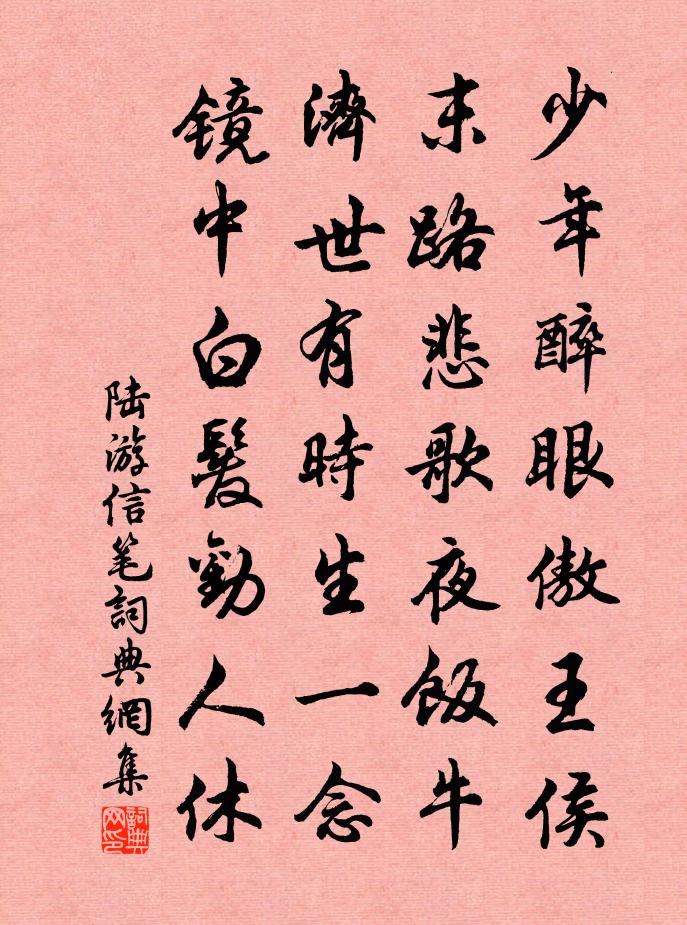 少年醉眼傲王侯
末路悲歌夜飯牛
濟世有時生一念
鏡中白髮勸人休
陆游信笔詞典網集
詞典网印